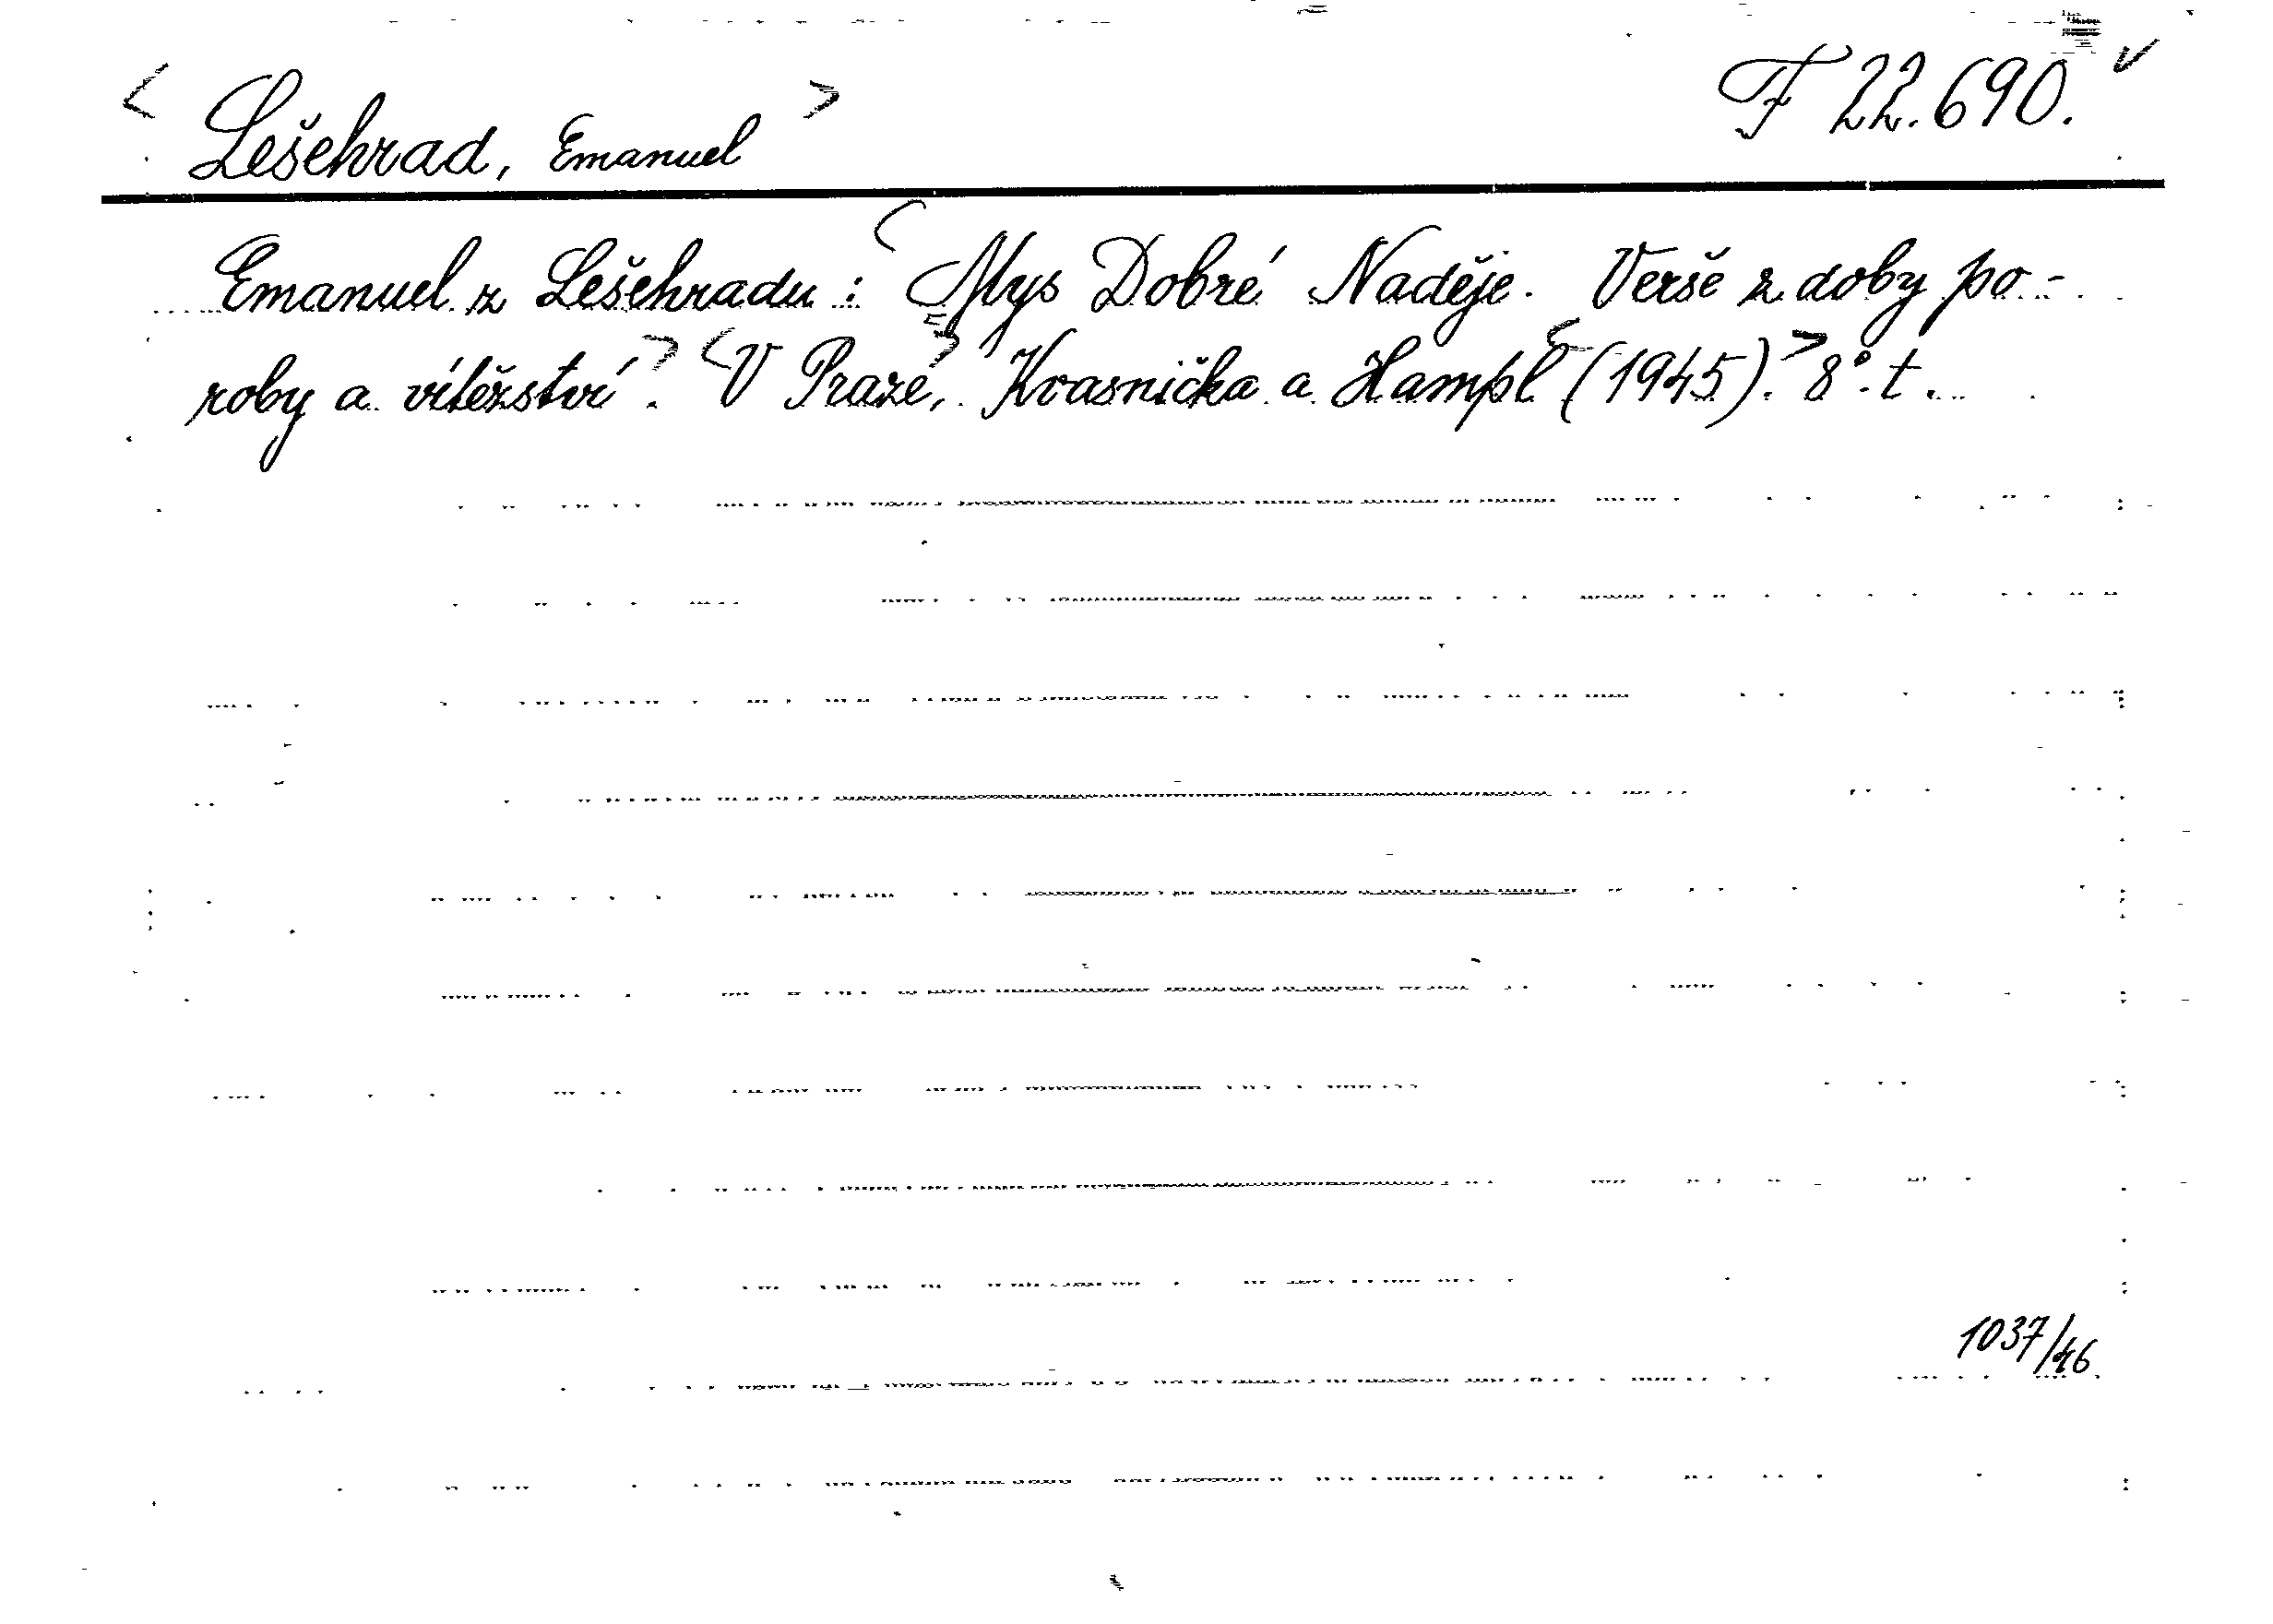 < Lešehrad, Emanuel > F 22.690. v
Emanuel z Lešehradu: < Mys Dobré Naděje. Verše z doby po-
roby a vítězství. > < V Praze, > Kvasnička a Hampl < (1945). > 8°. t.
1037/46